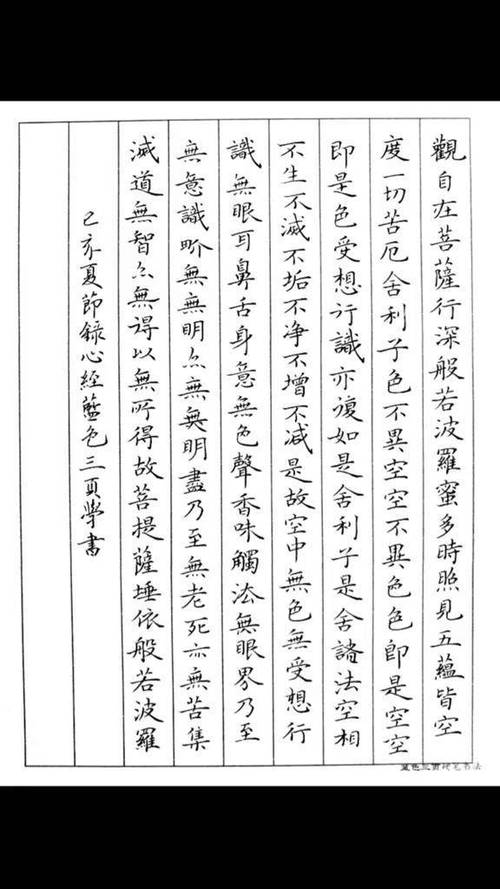 觀自在菩薩行深般若波羅蜜多時照見五蘊皆空
度一切苦厄舍利子色不異空空不異色色即是空空
即是色受想行識亦復如是舍利子是舍諸法空相
不生不滅不垢不净不增不減是故空中無色無受想行
識無眼耳鼻舌身意無色聲香味觸法無眼界乃至
無意識界無無明亦無無明盡乃至無老死亦無苦集
滅道無智亦無得以無所得故菩提薩埵依般若波羅
己亥夏節錄心經藍色三頁學書
蓝色三页硬笔书法